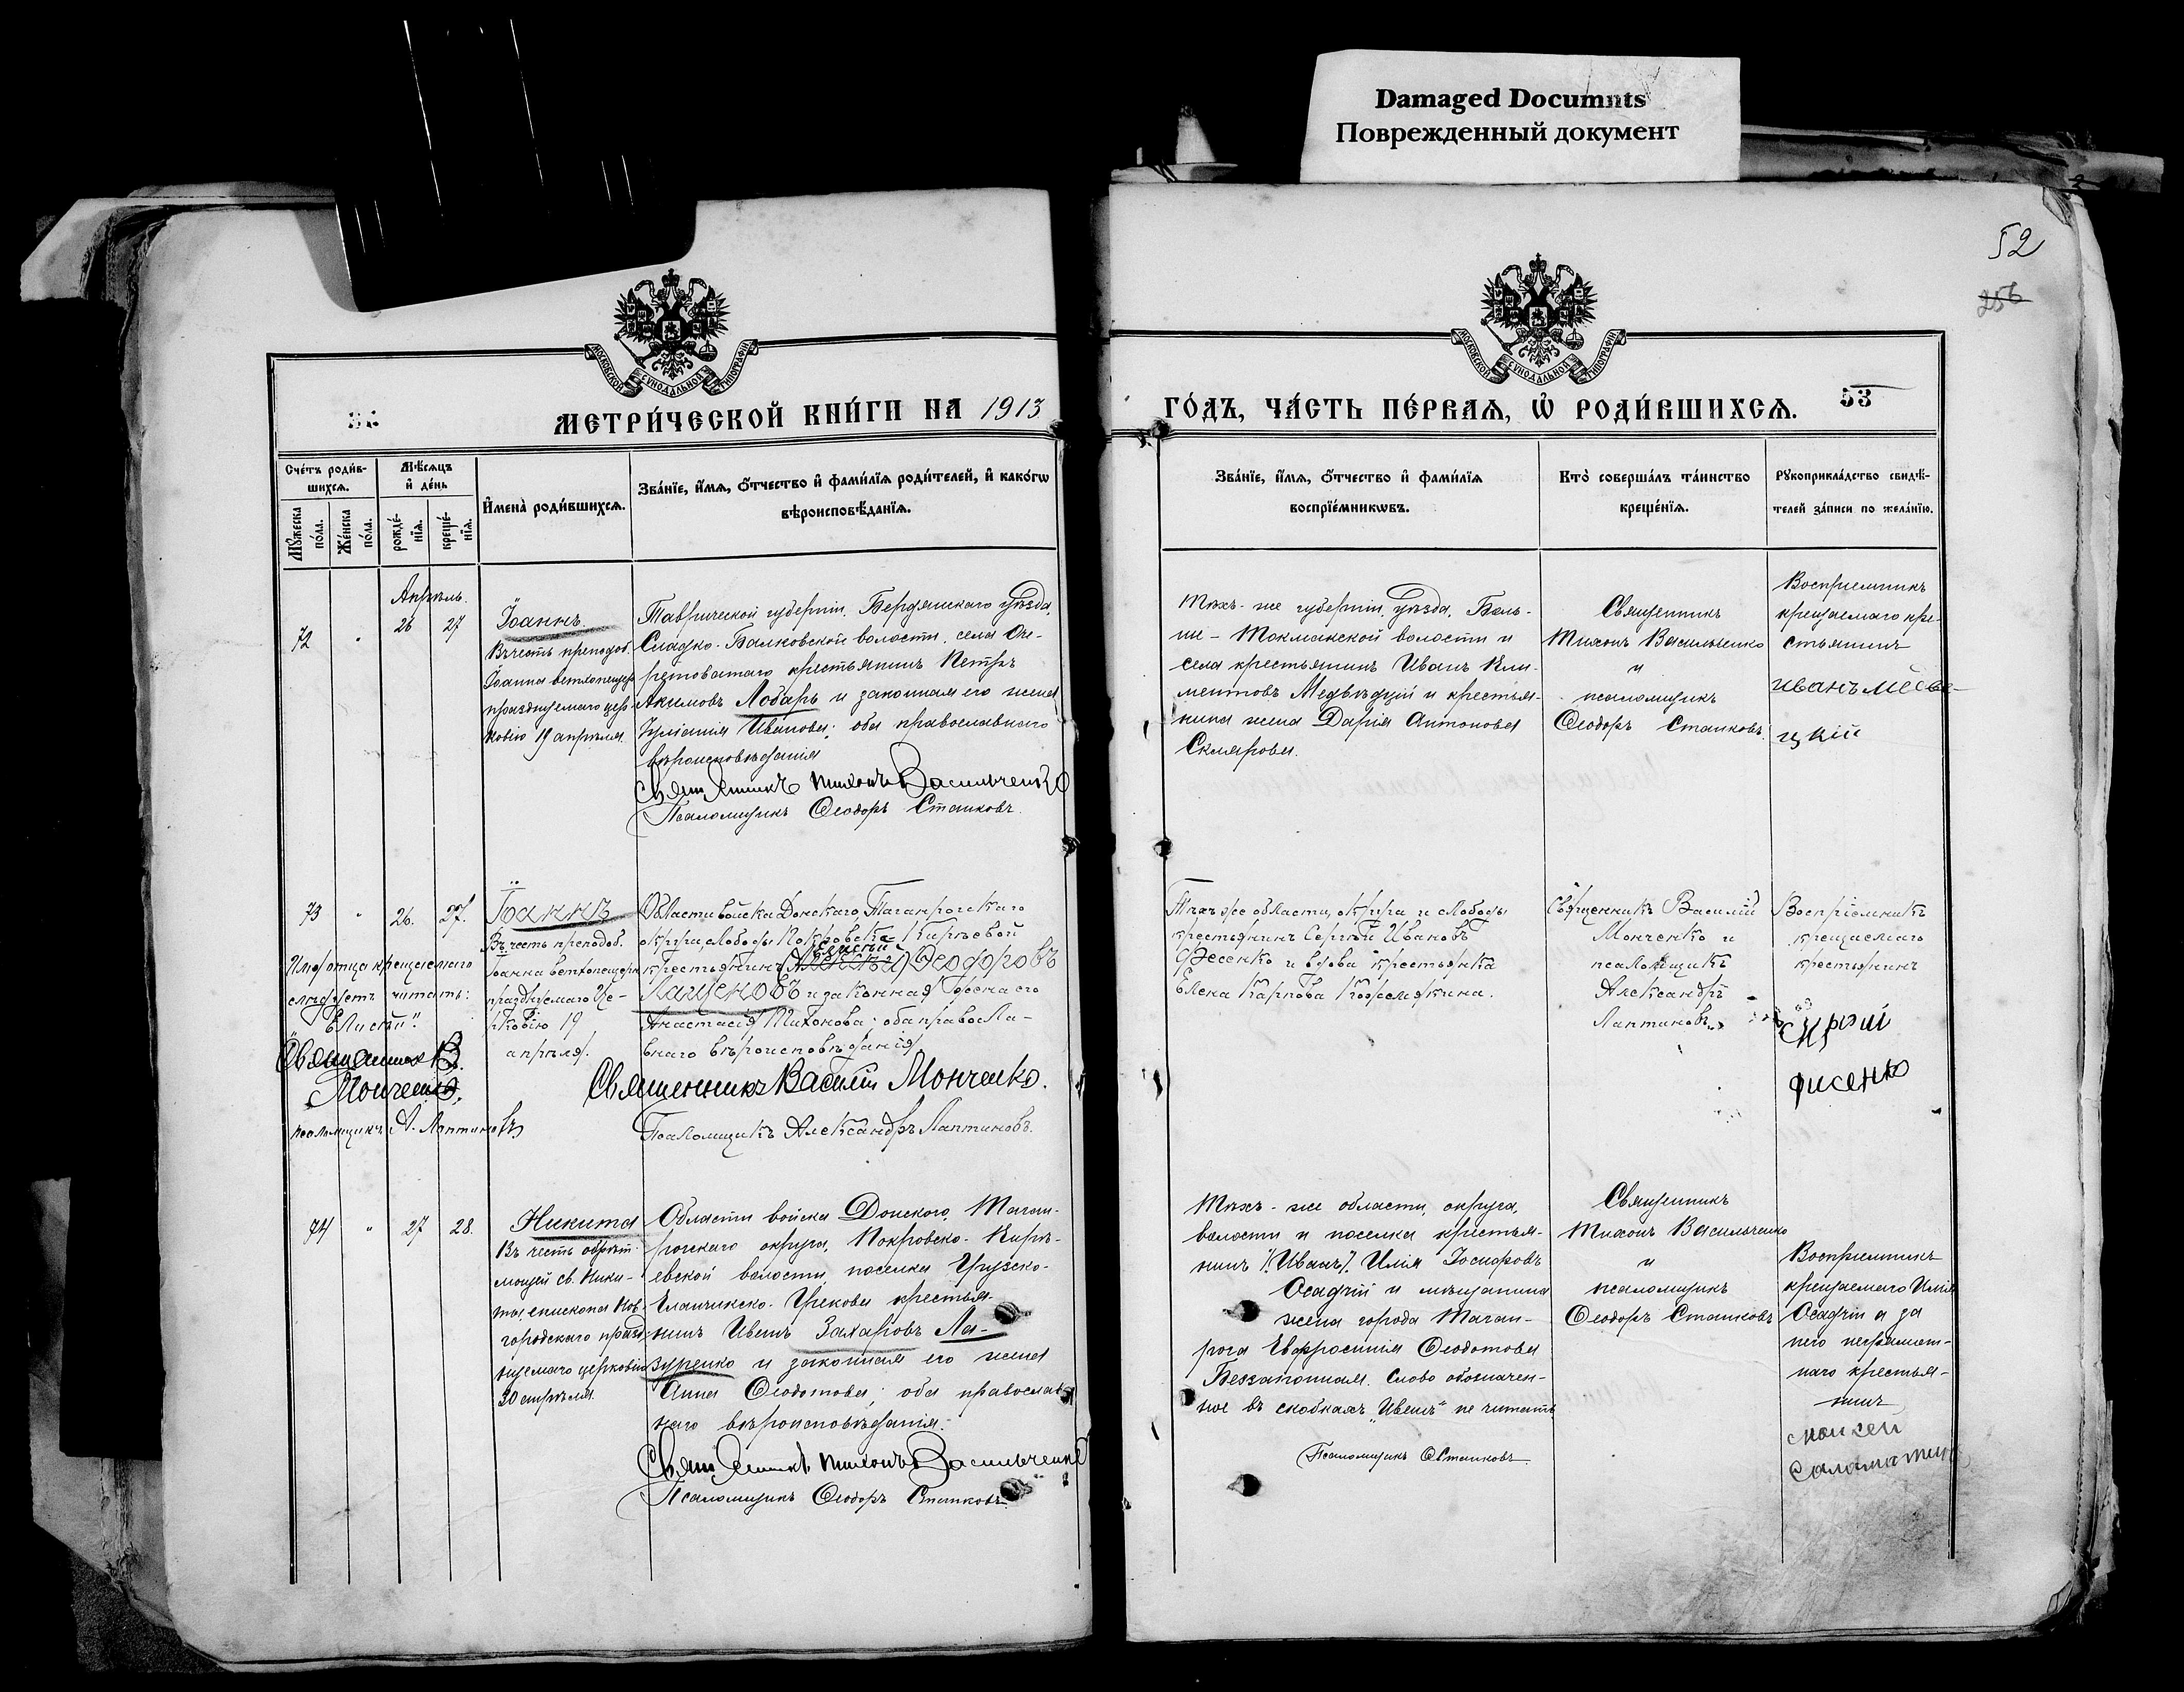 Damaged Documnts
Поврежденный документ
52
256
МОСКОВСКОЙ СѴНОДАЛЬНОЙ ТИПОГРАФІИ
МЕТРИ́ЧЕСКОЙ КНИ́ГИ НА 1913
МОСКОВСКОЙ СѴНОДАЛЬНОЙ ТИПОГРАФІИ
ГО́ДЪ, ЧА́СТЬ ПЕ́РВАЯ, Ѡ РОДИ́ВШИХСЯ.
53
Сче́тъ роди́в-
шихся.
Мꙋ́жеска
по́ла.
Же́нска
по́ла.
Мѣ́сяцъ
и де́нь
рожде́-
нїя.
креще́-
нїя.
Имена̀ роди́вшихся.
Зва́нїе, и́мя, ѻ́тчество и фами́лїя роди́телей, и како́гѡ
вѣроисповѣ́данїя.
Зва́нїе, и́мя, ѻ́тчество и фами́лїя
воспрїе́мникѡвъ.
Кто̀ соверша́лъ та́инство
креще́нїя.
Рꙋкоприкла́дство свидѣ́-
телей за́писи по жела́нїю.
Апрѣль.
72
"
26
27
Іоаннъ
Въ честь преподоб.
Іоанна ветхопещер.
празднуемаго цер-
ковію 19 апрѣля.
Таврической губерніи, Бердянскаго уѣзда,
Сладко-Балковской волости, села Оче-
ретоватаго крестьянинъ Петръ
Акимовъ Лобаръ и законная его жена
Іуліанія Иванова; оба православнаго
вѣроисповѣданія
Священникъ Тихонъ Васильченко
Псаломщикъ Ѳеодоръ Станковъ.
Тѣхъ-же губерніи, уѣзда, Боль-
ше-Токмакской волости и
села крестьянинъ Иванъ Кли-
ментовъ Медвѣдскій и крестьян-
кина жена Дарія Антонова
Склярова.
Священникъ
Тихонъ Васильченко
и
псаломщикъ
Ѳеодоръ Станковъ.
Воспріемникъ
крещаемаго кре-
стьянинъ
иванъ Медве-
цкій
73
"
26.
27.
Іоаннъ
Въ честь преподоб.
Іоанна ветхопещерн.
празднуемаго Це-
рковію 19
апрѣля.
Имя отца крещаемаго
слѣдуетъ читать:
"Елисѣй".
Священник В.
Мончешко,
псаломщикъ А. Лаптиновъ
Области войска Донскаго, Таганрогскаго
округа, слободы Покровско-Кирѣевой
Елисѣй
крестьянинъ (Алексѣй) Ѳеодоровъ
Лащеновъ и законная жена его
Анастасія Тихонова; оба правосла-
внаго вѣроисповѣданія
Священникъ Василій Мончешко.
Псаломщикъ Александръ Лаптиновъ.
Тѣхъ же области, округа и слободы
крестьянинъ Сергѣй Ивановъ
Фесенко и вдова крестьянка
Елена Карпова
Священникъ Василій
Монченко и
псаломщикъ
Александръ
Лаптиновъ.
Воспріемникъ
крещаемаго
крестьянинъ
фисенко
74
"
27
28.
Никита
Въ честь обрѣт.
мощей св. Ники-
ты, епископа Нов-
городскаго празд-
нуемаго церковію
30 апрѣля.
Области войска Донского, Таган-
рогскаго округа, Покровско-Кирѣ-
евской волости, поселка Грузско-
Еланчикско-Грекова крестья-
нинъ Иванъ Захаровъ Ла-
зуренко и законная его жена
Анна Ѳеодотова; оба православ-
наго вѣроисповѣданія.
Священникъ Тихонъ Васильченко
Псаломщикъ Ѳеодоръ Станковъ.
Тѣхъ-же области, округа,
волости и поселка крестья-
нинъ /.Иванъ/. Илія Іосифовъ
Осадчій и мѣщанина
жена города Таган-
рога Евфросинія Ѳеодотова
Беззаконная. Слово обозначен-
ное въ скобкахъ "Иванъ" не читать
Псаломщикъ Ѳ Станковъ
Священникъ
Тихонъ Васильченко
и
псаломщикъ
Ѳеодоръ Станковъ
Воспріемникъ
крещаемаго Илія
Осадчій а за
него неграмот-
наго крестья-
нинъ
Моисей
Саламатинъ